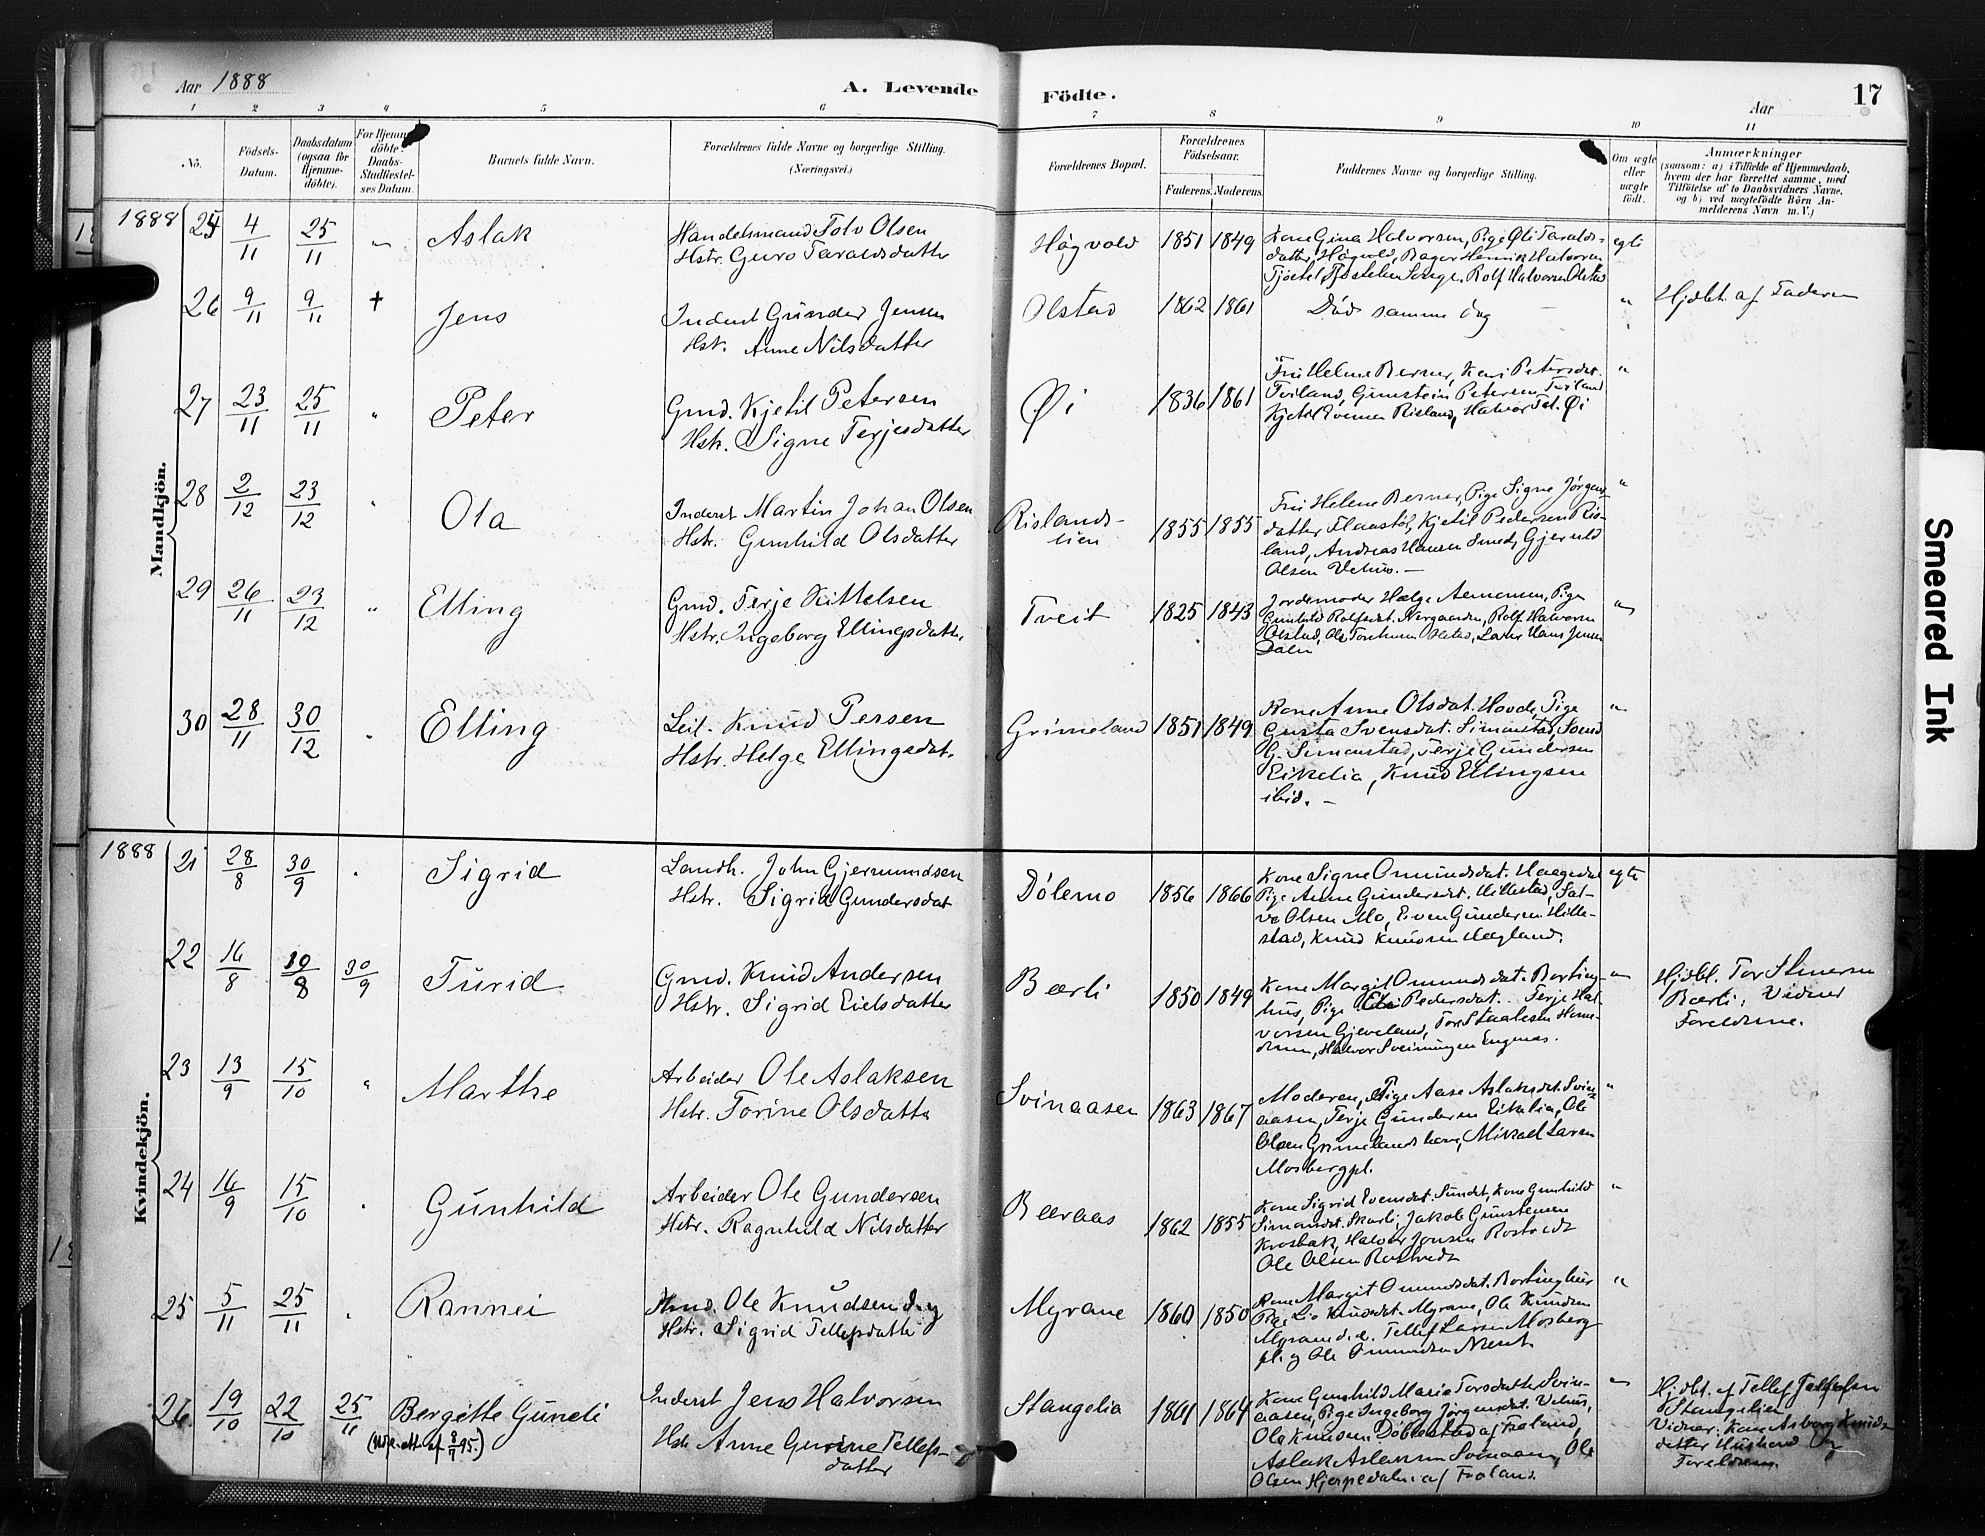 Aar 1888
A. Levende Födte.
Aar
17
1 2 3 4 5 6 7 8 9 10 11
No.
Födsels-Datum.
Daabsdatum (ogsaa for Hjemme-döbte).
For Hjemme-döbte: Daabs-Stadfæstel-ses Datum.
Barnets fulde Navn.
Forældrenes fulde Navne og borgerlige Stilling. (Næringsvei.)
Forældrenes Bopæl.
Forældrenes Födselsaar.
Faderens. Moderens.
Faddernes Navne og borgerlige Stilling.
Om ægte eller uægte födt.
Anmærkninger
(saasom: a) i Tilfælde af Hjemmedaab, hvem der har forrettet samme, med Tilföielse af to Daabsvidners Navne, og b) ved uægtefödte Börn An-melderens Navn m. V.)
Mandkjön.
1888 25 4/11 25/11 " Aslak
Handelsmand Tolv Olsen
Hstr. Guro Taraldsdatter
Høgvold 1851 1849
Kone Gina Halvorsen, Pige Øli Taralds-
datter Høgvold, Bager Henrik Halvorsen
Rolf Halvorsen Olstad
egte
26 9/11 9/11 + Jens
Inderst Gunder Jensen
Hstr. Anne Nilsdatter
Olstad 1862 1861
Død samme dag
"
Hjdbt. af Faderen
27 23/11 25/11 " Peter
Gmd. Kjetil Petersen
Hstr. Signe Terjesdatter
Øi 1836 1861
Fru Helene Berner, Kari Petersdat.
Tviland, Gunstein Petersen Tviland
Kjetil Evensen Risland, Halvor Øi
"
28 2/12 23/12 " Ola
Inderst Martin Johan Olsen
Hstr. Gunhild Olsdatter
Rislands-
lien 1855 1855
Fru Helene Berner, Pige Signe Jørgens-
datter Flaastøl, Kjetil Pedersen Ris-
land, Andreas Hansen Smed, Gjeruld
Olsen Vehus. –
"
29 26/11 23/12 " Elling
Gmd. Terje Kittelsen
Hstr. Ingeborg Ellingsdatter
Tveit 1825 1843
Jordemoder Helge Aamonsen, Pige
Gunhild Rolfsdat. Nergaarden, Rolf Halvorsen
Olstad, Ole Olstad, Hans Jensen
Dalen
"
30 28/11 30/12 " Elling
Leil. Knud Persen
Hstr. Helge Ellingsdat.
Grimeland 1851 1849
Kone Anne Olsdat. Hovde, Pige
Gusta Svensdat. Simonstad, Svend
G. Simonstad, Terje Gundersen
Eikelia, Knud Ellingsen
ibid. –
"
Kvindekjön.
1888 21 28/8 30/9 " Sigrid
Landh. John Gjermundsen
Hstr. Sigrid Gundersdat
Dölemo 1856 1866
Kone Signe Omundsdat. Haugedal
Pige Anne Gundersdat. Hillestad, Sal-
ve Olsen Mo, Even Gundersen Hille-
stad, Knud Knudsen Hægland.
egte
22 16/8 19/8 30/9 Turid
Gmd. Knud Andersen
Hstr. Sigrid Eielsdatter
Bærli 1850 1849
Kone Margit Omundsdat. Borting-
hus, Pige Eli Pedersdat. Terje Hal-
vorsen Gjeveland, Tor Staalesen
Halvor Sveinungsen Engenes.
"
Hjdbt. Tor
Bærli; Vidner
Foreldrene.
23 13/9 15/10 " Marthe
Arbeider Ole Aslaksen
Hstr. Torine Olsdatter
Svinaasen 1863 1867
Moderen, Pige Aase Aslaksdat. Svin-
aasen, Terje Gundersen Eikelia, Ole
Olsen Grimelandsheia, Mikael Larsen
Mosbergpl.
"
24 16/9 15/10 " Gunhild
Arbeider Ole Gundersen
Hstr. Ragnhild Nilsdatter
Bæraas 1862 1855
Kone Sigrid Evensdat. Sundet, Kone Gunhild
Simonsdat. Skarli, Jakob Gunstensen
Krosbak, Halvor Jonsen Rostvedt
Ole Olsen Rostvedt
"
25 5/11 25/11 " Rannei
Ole Knudsen d. y
Hstr. Sigrid Tellefsdatter
Myrane 1860 1850
Kone Margit Omundsdat. Bortinghus
Pige Liv Knudsdat. Myrane, Ole Knudsen
Myrane d. e. Tellef Larsen Mosberg
pl. og Ole Omundsen Næset
"
26 19/10 22/10 25/11 Bergitte Gundi
att. af 8/7 95.)
Inderst Jens Halvorsen
Hstr. Anne Gurine Tellefs-
datter
Stangelia 1861 1864
Kone Gunhild Marie Torsdatter Svin-
aasen, Pige Ingeborg Jørgensdat. Vehus,
Ole Knudsen Döblestad af Froland,
Aslak Aslaksen Svinaasen, Ole
Olsen Hjerpedalen af Froland.
"
Hjdbt. af Tellef Tellefsen
Stangelien
Vidner: Kone Asborg Knuds-
datter og
Foreldrene.
Smeared Ink